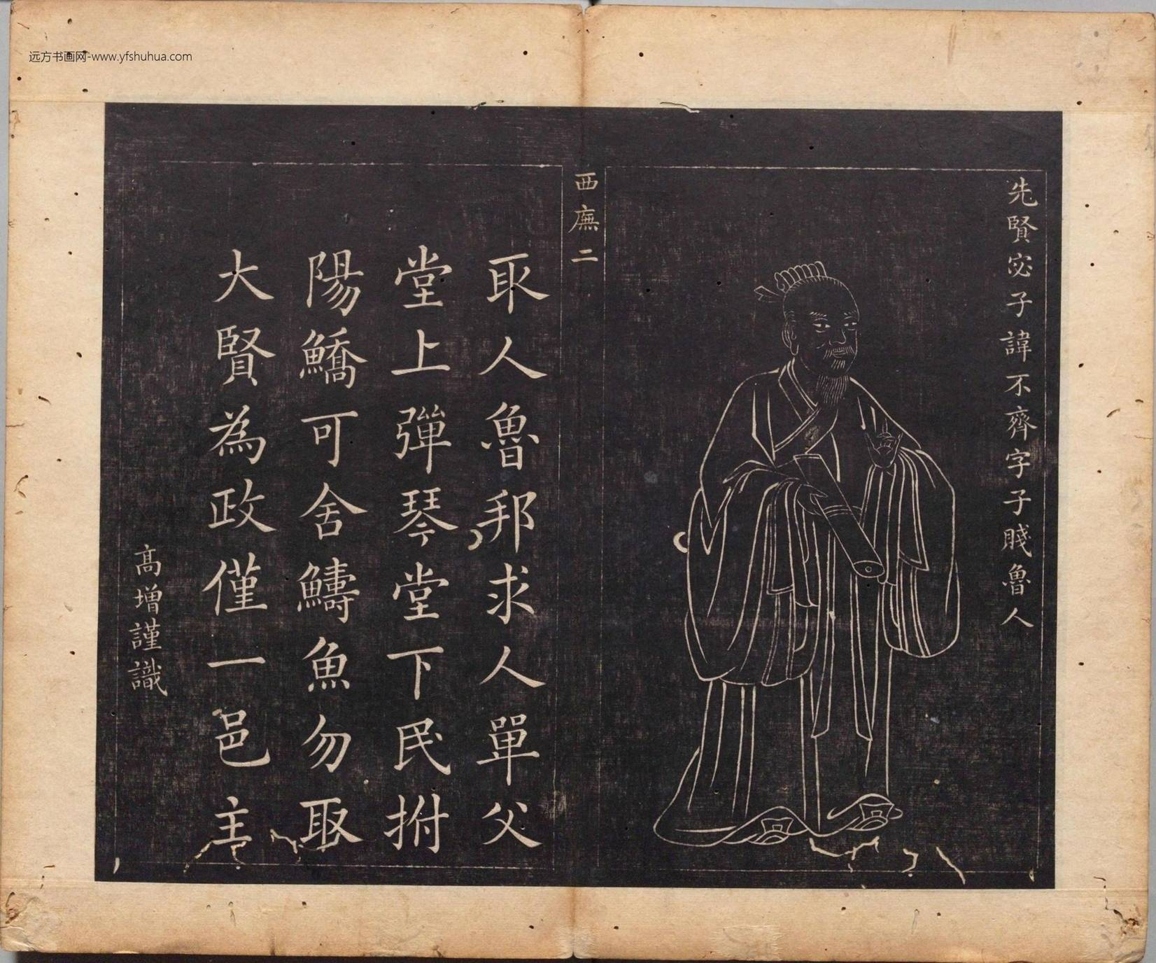 远方书画网-www.yfshuhua.com
先賢宓子諱不齊字子賤魯人
西廡二
取人魯邦求人單父
堂上彈琴堂下民拊
陽鱎可舍鱣魚勿取
大賢為政僅一邑主
高增謹識